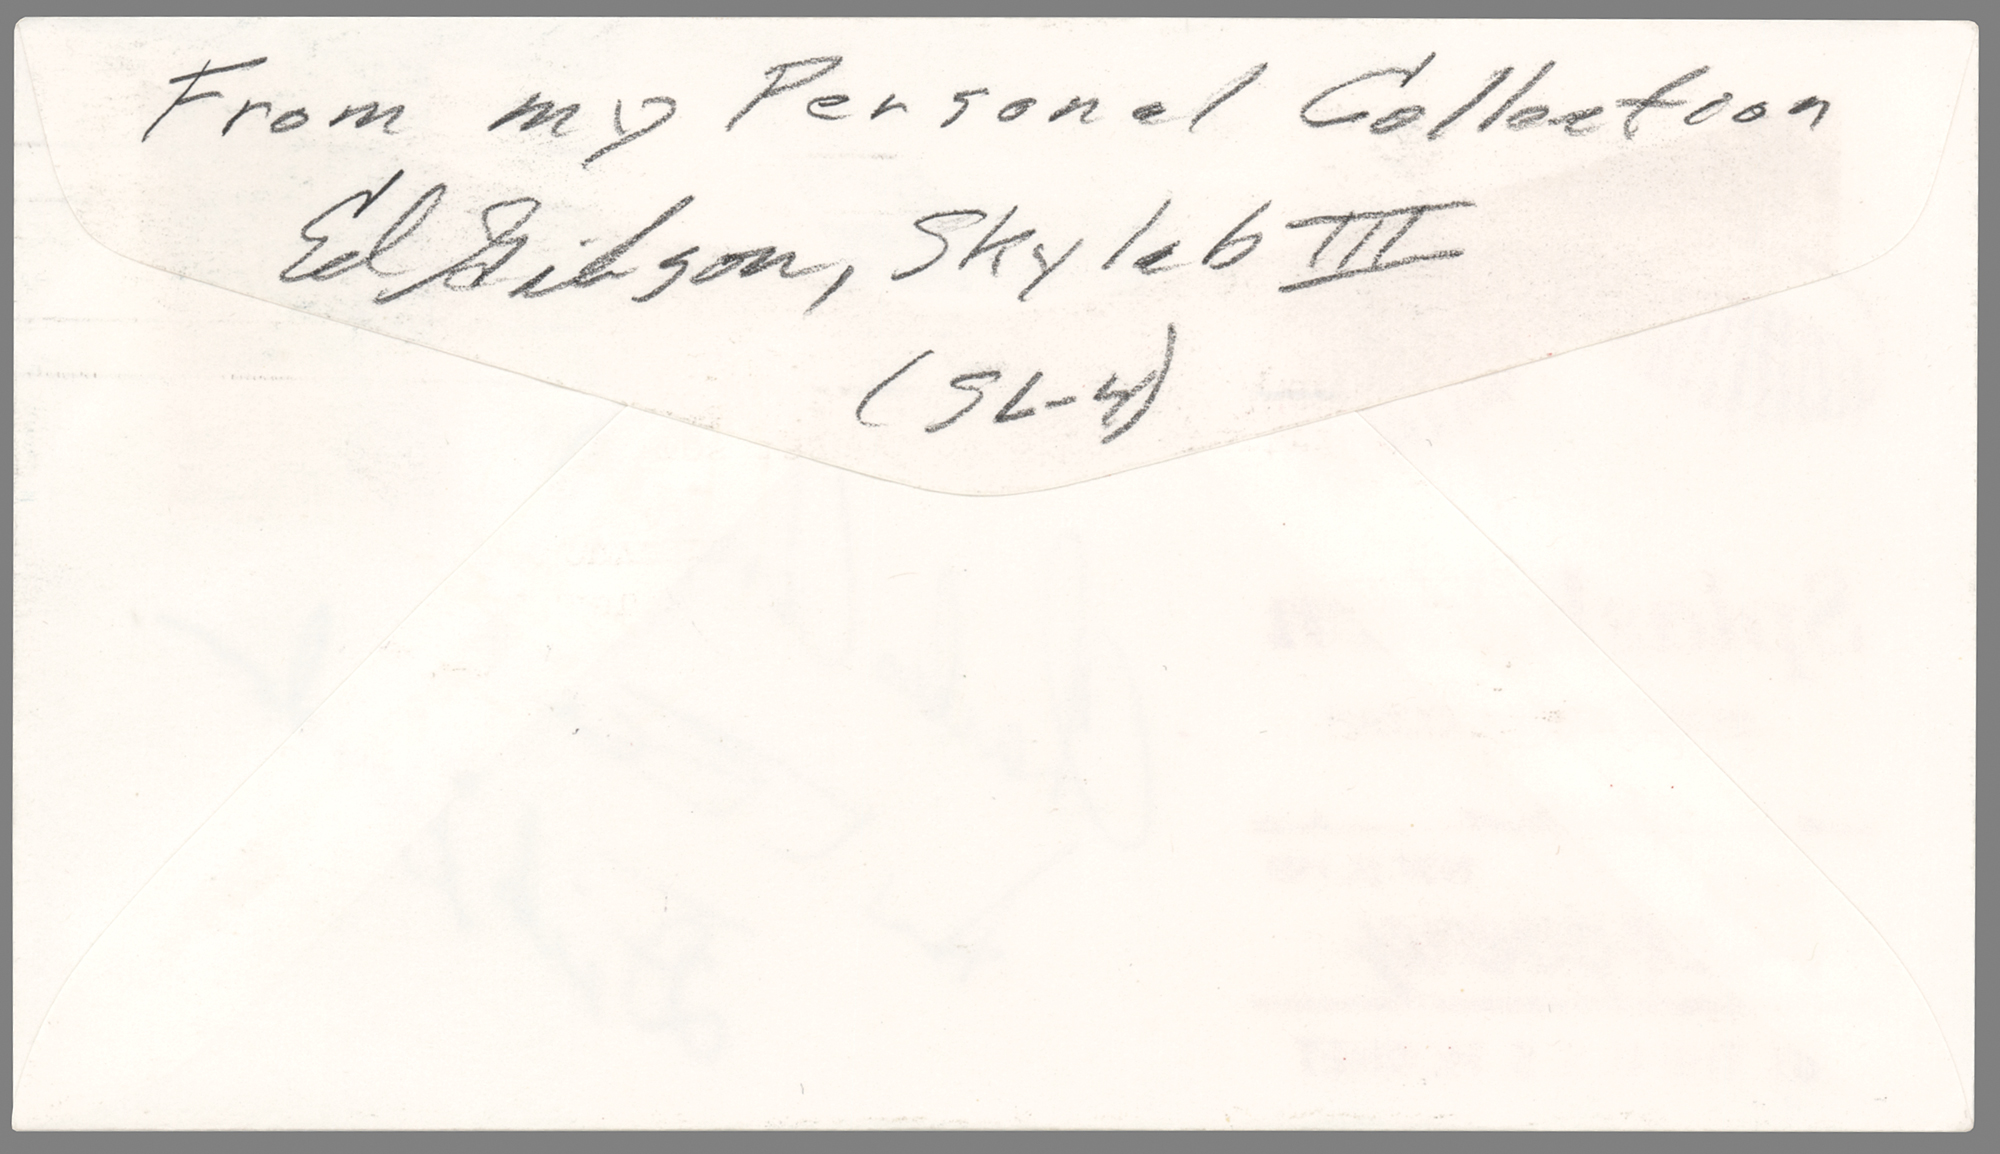 From my Personal Collection
Ed Gibson, Skylab III
(SL-4)